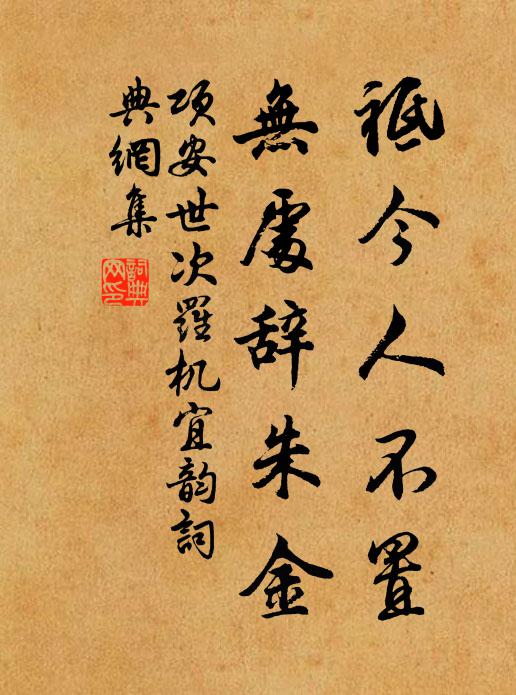 祗今人不置
無處辞朱金
項安世次羅机宜韵詞
典網集
詞典
网印